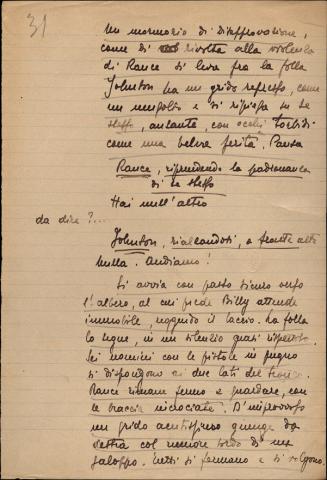 31
Un mormorio di disapprovazione,
come di rivolta alla violenza
di Rance si leva fra la folla
Johnson ha un grido represso, come
un singulto e si ripiega su se
stesso, ansante, con occhi torbidi
come una belva ferita. Pausa
Rance, riprendendo la padronanza
di se stesso
Hai null'altro
da dire?....
Johnson, rialzandosi, a fronte alta
Nulla. Andiamo!
Si avvia con passo sicuro verso
l'albero, al cui piede Billy attende
immobile, reggendo il laccio. La folla
lo segue, in un silenzio quasi rispettoso.
Sei uomini con le pistole in pugno
si dispongono ai due lati del tronco.
Rance rimane fermo a guardare, con
le braccia incrociate. D'improvviso
un grido acutissimo giunge da
destra col rumore sordo di un
galoppo. Tutti si fermano e si volgono.